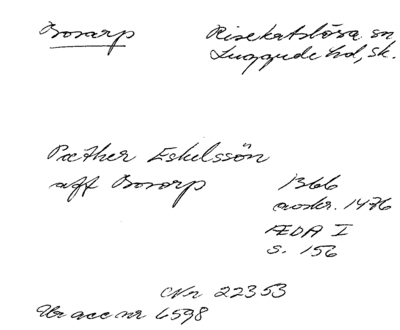 Bosarp Risekatslösa sn
Luggude hd, Sk.
Pæther Eskelssön
aff Bosorp 1366
avskr. 1476
ÆDA I
s. 156
Nr 22353
Ur acc nr 6598